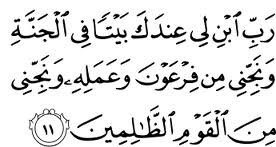 رَبِّ ٱبْنِ لِى عِندَكَ بَيْتًا فِى ٱلْجَنَّةِ
وَنَجِّنِى مِن فِرْعَوْنَ وَعَمَلِهِۦ وَنَجِّنِى
مِنَ ٱلْقَوْمِ ٱلظَّٰلِمِينَ ١١